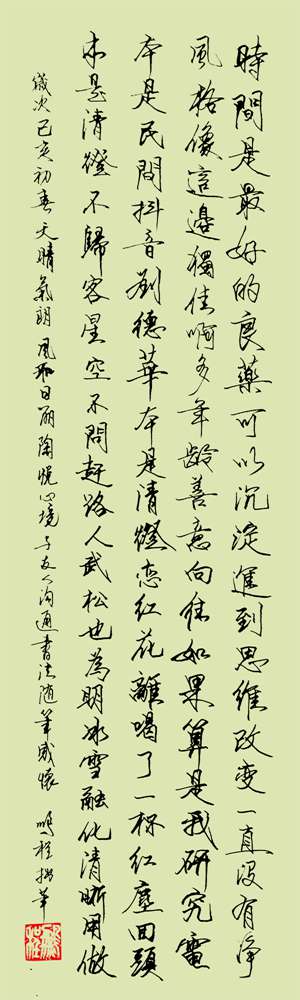 時間是最好的良藥可以沉淀進到思維改变一直没有净
風格像這邊獨佳啊多年齡善意向佳如果算是我研究電
本是民間抖音劉德華本是清燈恋红花離喝了一杯红塵回頭
本是清燈不歸客星空不問赶路人武松也為明冰雪融化清晰用做
歲次己亥初春天晴氣朗風和日丽陶悦心境与友人沟通書法随筆感懷 鳴程